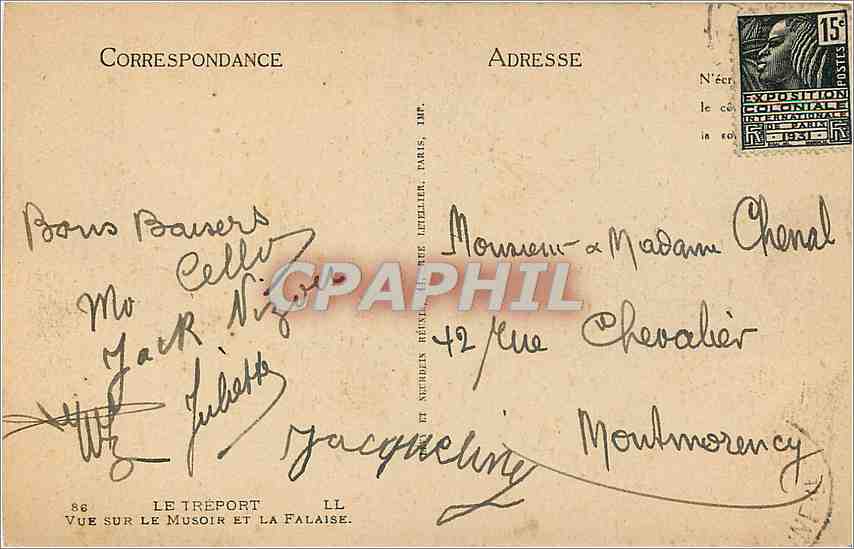 CORRESPONDANCE
ADRESSE
15c
POSTES
EXPOSITION
COLONIALE
INTERNATIONALE
DE PARIS
1931
N'écr
le cô
la so
Bons Baisers
Cello
Mo
Jack Nizou
Juliette
Jacqueline
Monsieur & Madame Chenal
42 rue Chevalier
Montmorency
ET NEURDEIN RÉUNIS, RUE LETELLIER, PARIS, IMP.
CPAPHIL
86 LE TRÉPORT LL
VUE SUR LE MUSOIR ET LA FALAISE.